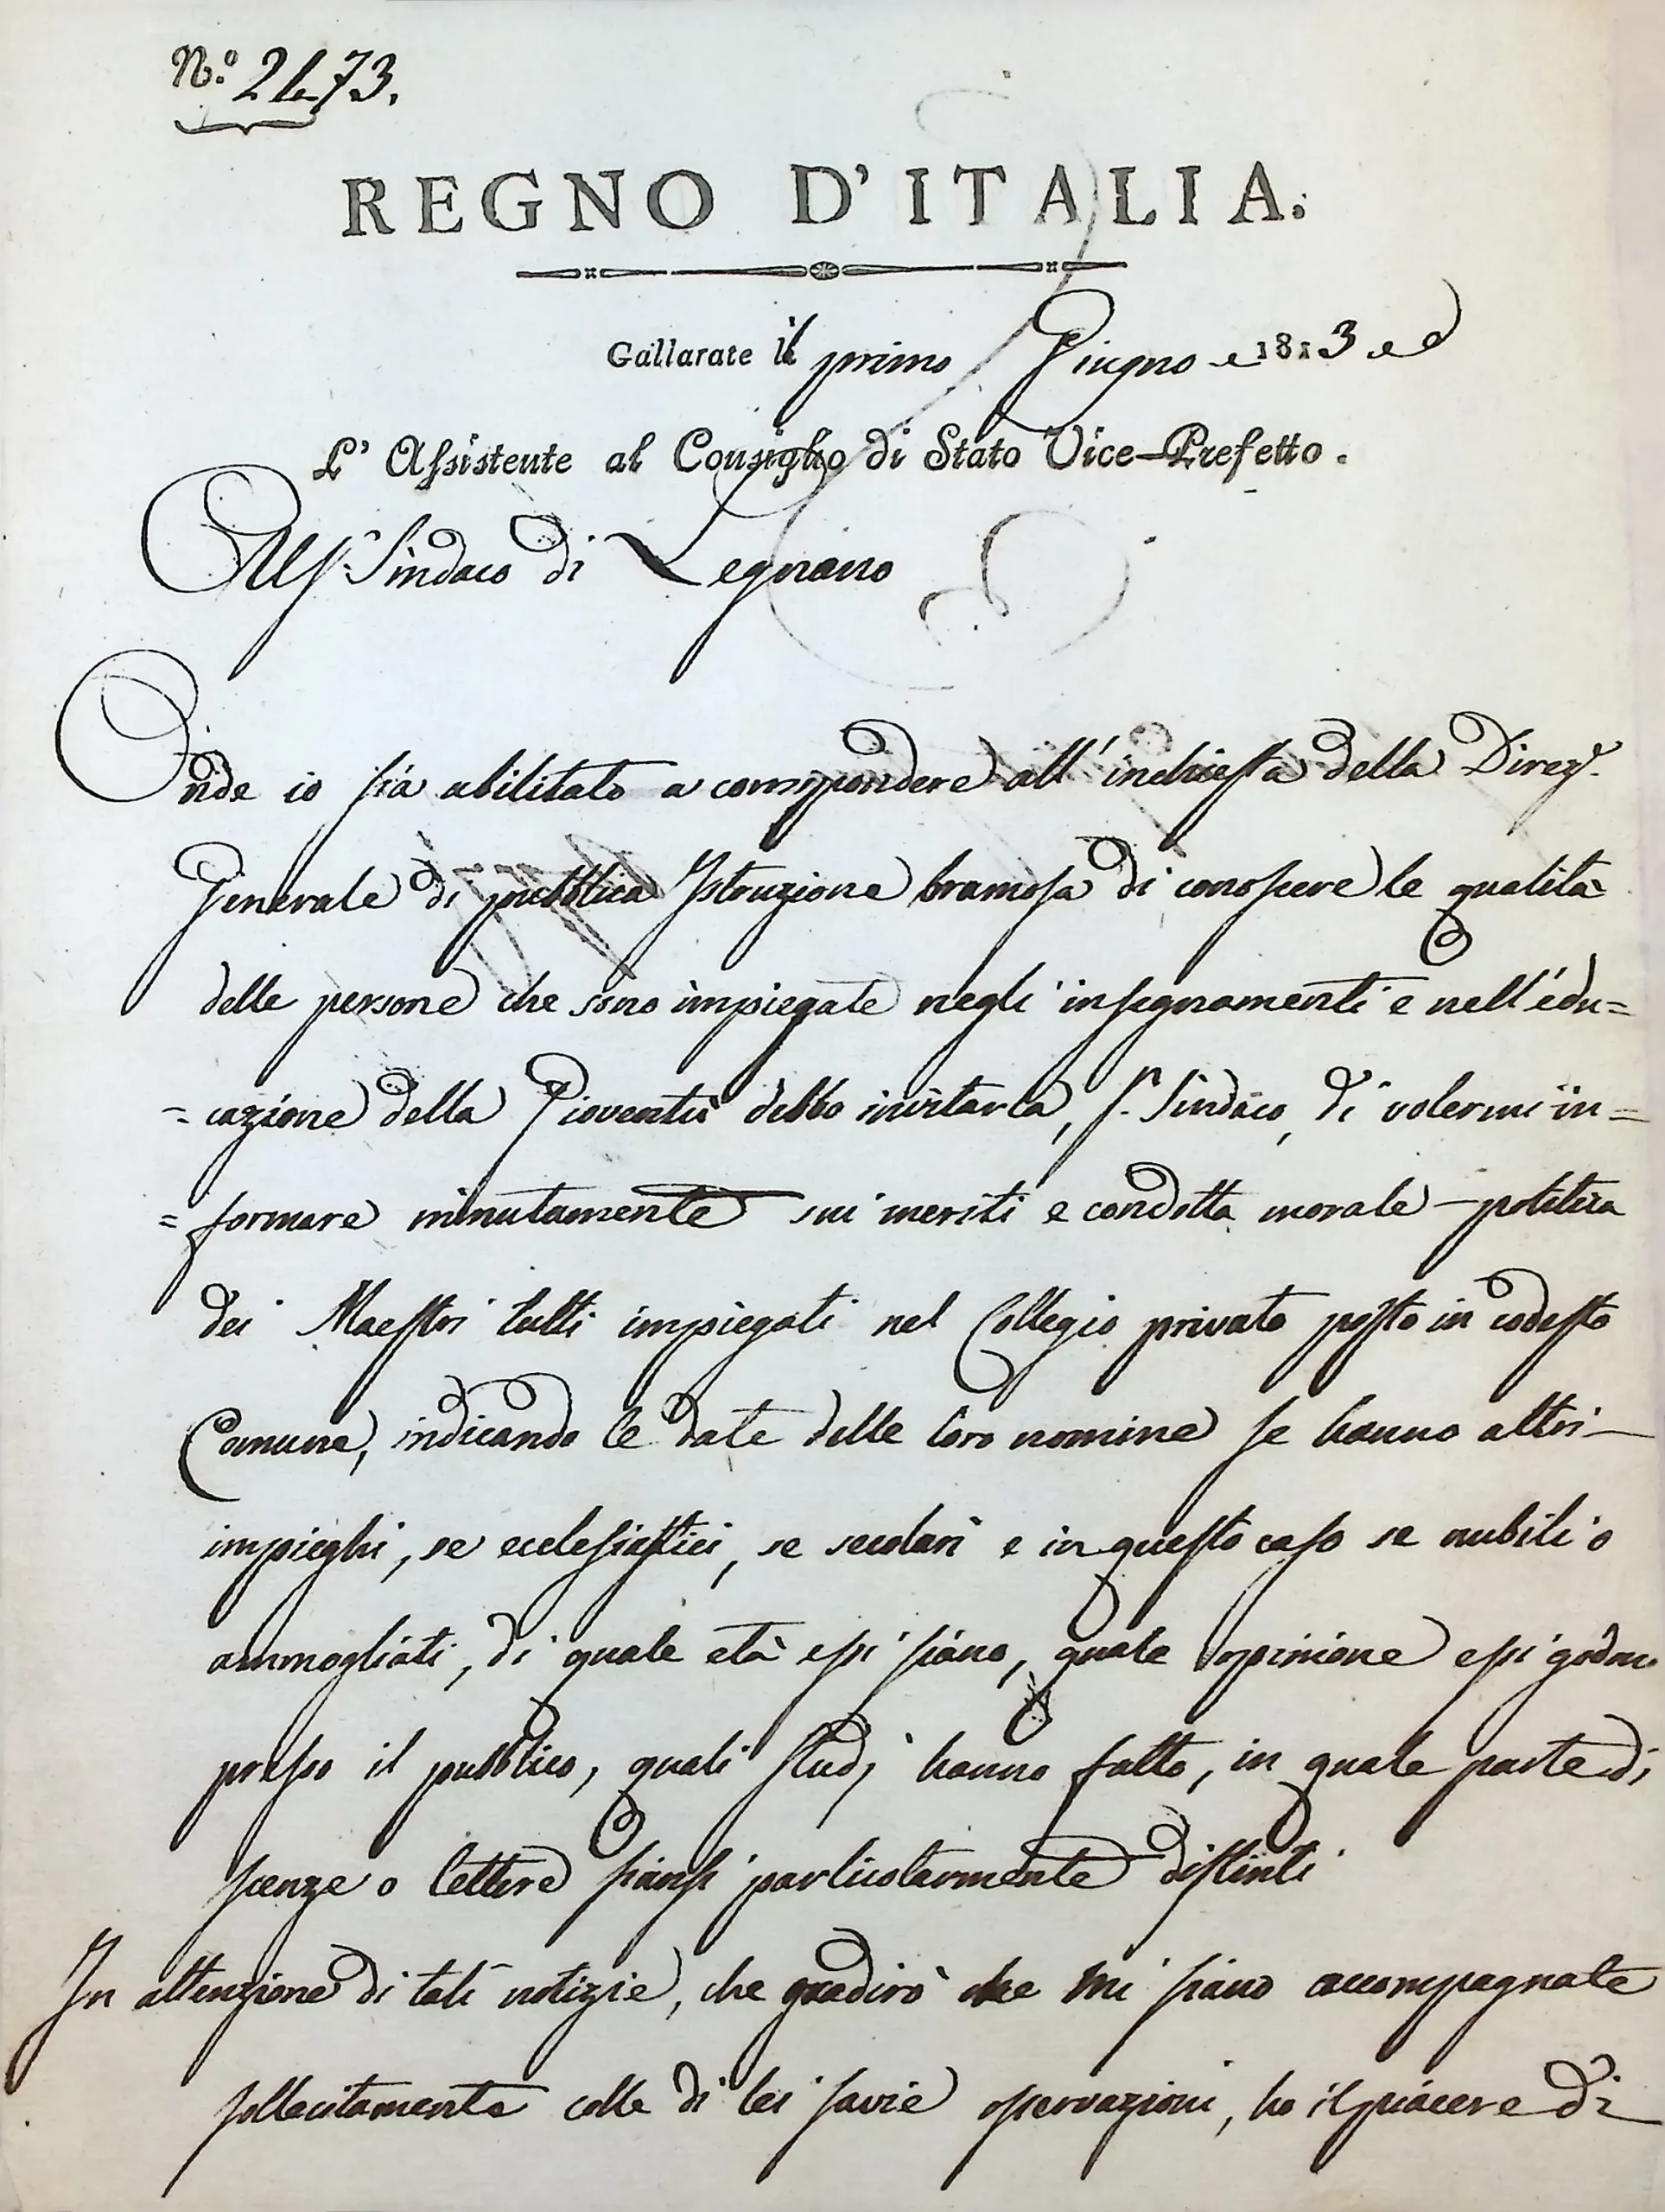 N.º 2473.
REGNO D'ITALIA.
Gallarate il primo Giugno 1813
L' Assistente al Consiglio di Stato Vice-Prefetto.
Al Sr. Sindaco di Legnano
Onde io sia abilitato a corrispondere all' inchiesta della Direz.e
Generale di pubblica Istruzione bramosa di conoscere le qualità
delle persone che sono impiegate negli insegnamenti e nell'edu=
=cazione della Gioventù debbo invitarla, Sr. Sindaco, di volermi in=
=formare minutamente sui meriti e condotta morale-politica
dei Maestri tutti impiegati nel Collegio privato posto in codesto
Comune, indicando le date delle loro nomine se hanno altri
impieghi, se eclesiastici, se secolari e in questo caso se nubili o
ammogliati, di quale età essi siano, quale opinione essi godono
presso il pubblico, quali studj hanno fatto, in quale parte di
scenze o lettere siansi particolarmente distinti
In attenzione di tali notizie, che gradirò che mi siano accompagnate
sollecitamente colle di lei savie osservazioni, ho il piacere di